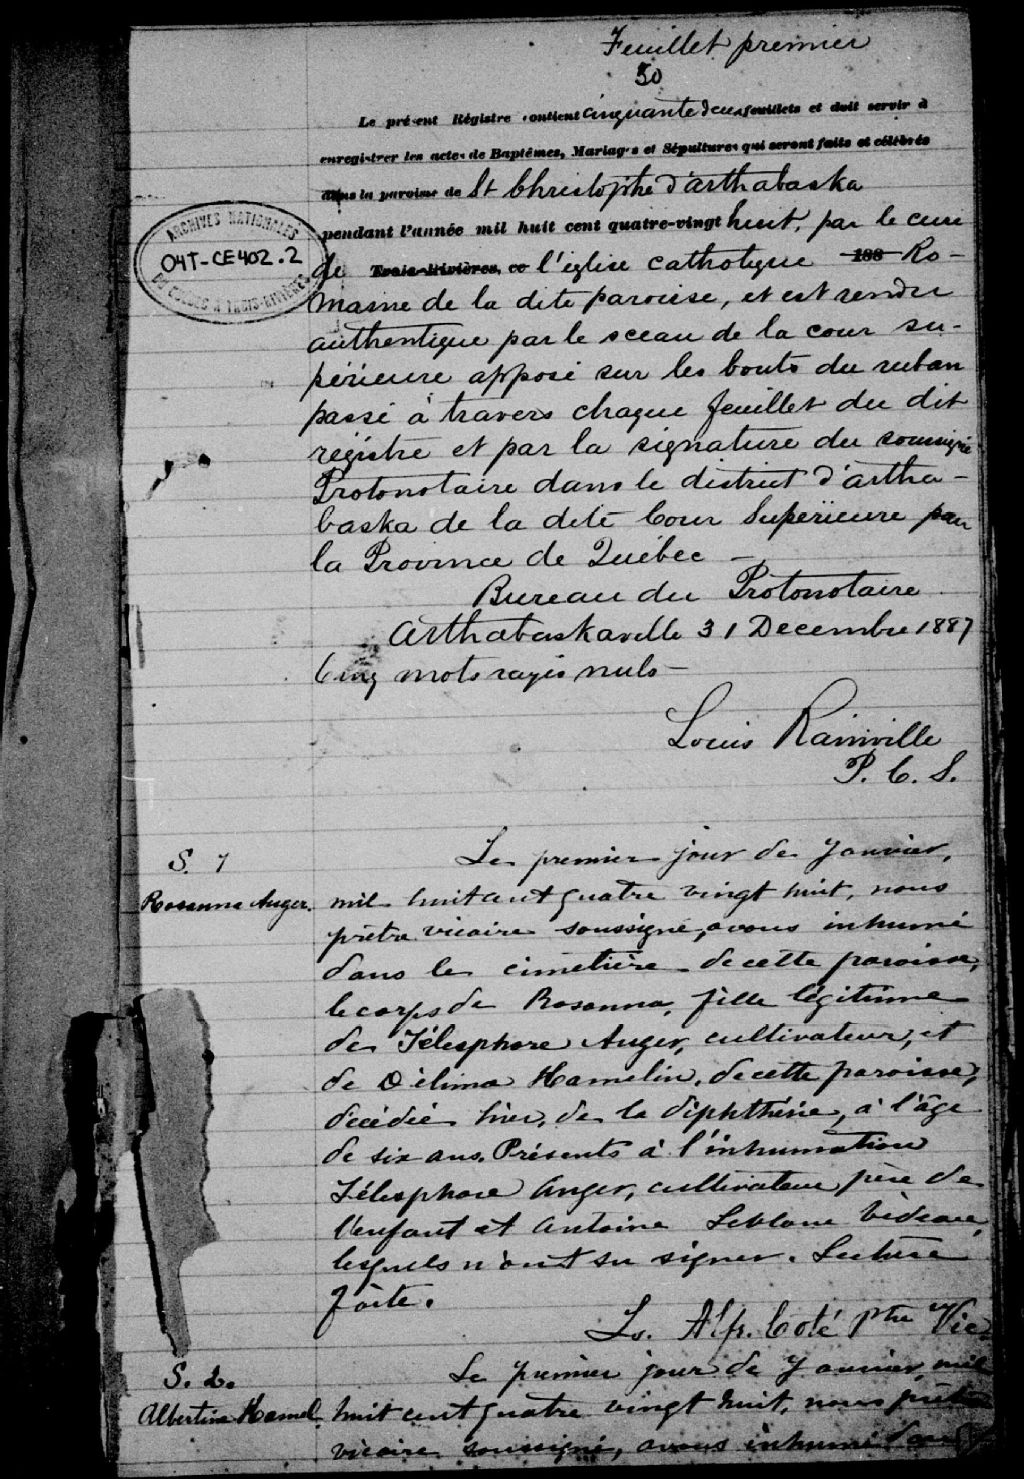 Feuillet premier
50
Le présent Régistre contient cinquante deux feuillets et doit servir à
enregistrer les actes de Baptêmes, Mariages et Sépultures qui seront faits et célébrés
dans la paroisse de St Christophe d'arthabaska
pendant l'année mil huit cent quatre-vingt huit, par le curé
de Trois-Rivières, ce l'église catholique 188 Ro-
maine de la dite paroisse, et est rendu
authentique par le sceau de la cour su-
périeure apposé sur les bouts du ruban
passé à travers chaque feuillet du dit
régistre et par la signature du soussigné
Protonotaire dans le district d'artha-
baska de la dite Cour Supérieure pour
la Province de Québec —
Bureau du Protonotaire
Arthabaskaville 31 Decembre 1887
Cinq mots rayés nuls —
Louis Rainville
P. C. S.
ARCHIVES NATIONALES
04T-CE402.2
DU QUÉBEC À TROIS-RIVIÈRES
S. 1
Rosanna Auger.
Le premier jour de Janvier,
mil huit cent quatre vingt huit, nous
prêtre vicaire soussigné, avons inhumé
dans le cimetière de cette paroisse,
le corps de Rosanna, fille légitime
de Télesphore Auger, cultivateur, et
de Délima Hamelin, de cette paroisse,
décédée hier, de la diphthérie, à l'âge
de six ans. Présents à l'inhumation
Télesphore Auger, cultivateur père de
l'enfant et Antoine Leblanc bédeau,
lesquels n'ont su signer. Lecture
faite.
Ls. Alfr. Coté Ptre Vic.
S. 2.
Albertine Hamel
Le premier jour de Janvier, mil
huit cent quatre vingt huit, nous prêtre
vicaire soussigné, avons inhumé dans